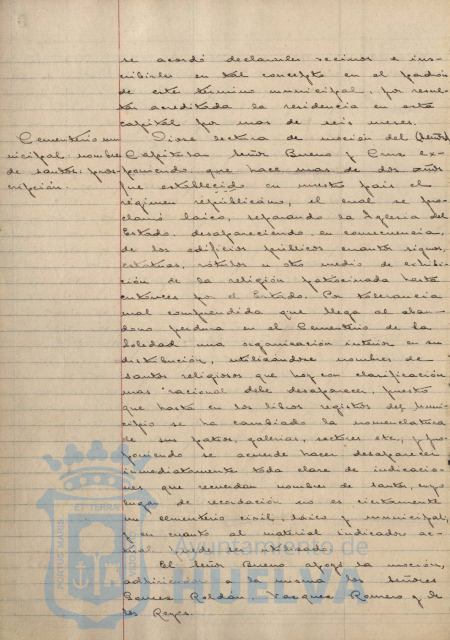 se acordó declararles vecinos e ins-
cribirles en tal concepto en el padrón
de este término municipal, por resul-
tar acreditada la residencia en esta
capital por mas de seis meses.
Cementerio mu
nicipal: nombre
de santos: pros-
cripción.
Diose lectura de moción del
Capitular Señor Bueno y Cruz ex-
poniendo que hace mas de dos años
fue establecido en nuestro país el
régimen republicano, el cual se pro-
clamó laico, separando la Iglesia del
Estado, desapareciendo, en consecuencia,
de los edificios públicos cuantos signos,
estatuas, rótulos u otro medio de exhibi-
ción de la religión patrocinada hasta
entonces por el Estado. Por tolerancia
mal comprendida que llega al aban-
dono perdura en el Cementerio de la
Soledad una organización interior en su
distribución, utilizándose nombres de
santos religiosos que hoy con clasificación
mas racional debe desaparecer, puesto
que hasta en los libros registros del muni-
cipio se ha cambiado la nomenclatura
de sus patios, galerías, sectores etc., y pro-
poniendo se acuerde hacer desaparecer
inmediatamente toda clase de indicacio-
nes que recuerdan nombres de santos, cuyo
lugar de recordación no es ciertamente
un cementerio civil, laico y municipal,
y en cuanto al material indicador ac-
tual puede ser utilizado.
El Señor Bueno apoyó la moción,
adhiriéndose a la misma los Señores
Gomez Roldán, Vazquez Romero y de
los Reyes.
ET TERRAE
PORTUS MARIS
CUSTODIA
Ayuntamiento de
HUELVA